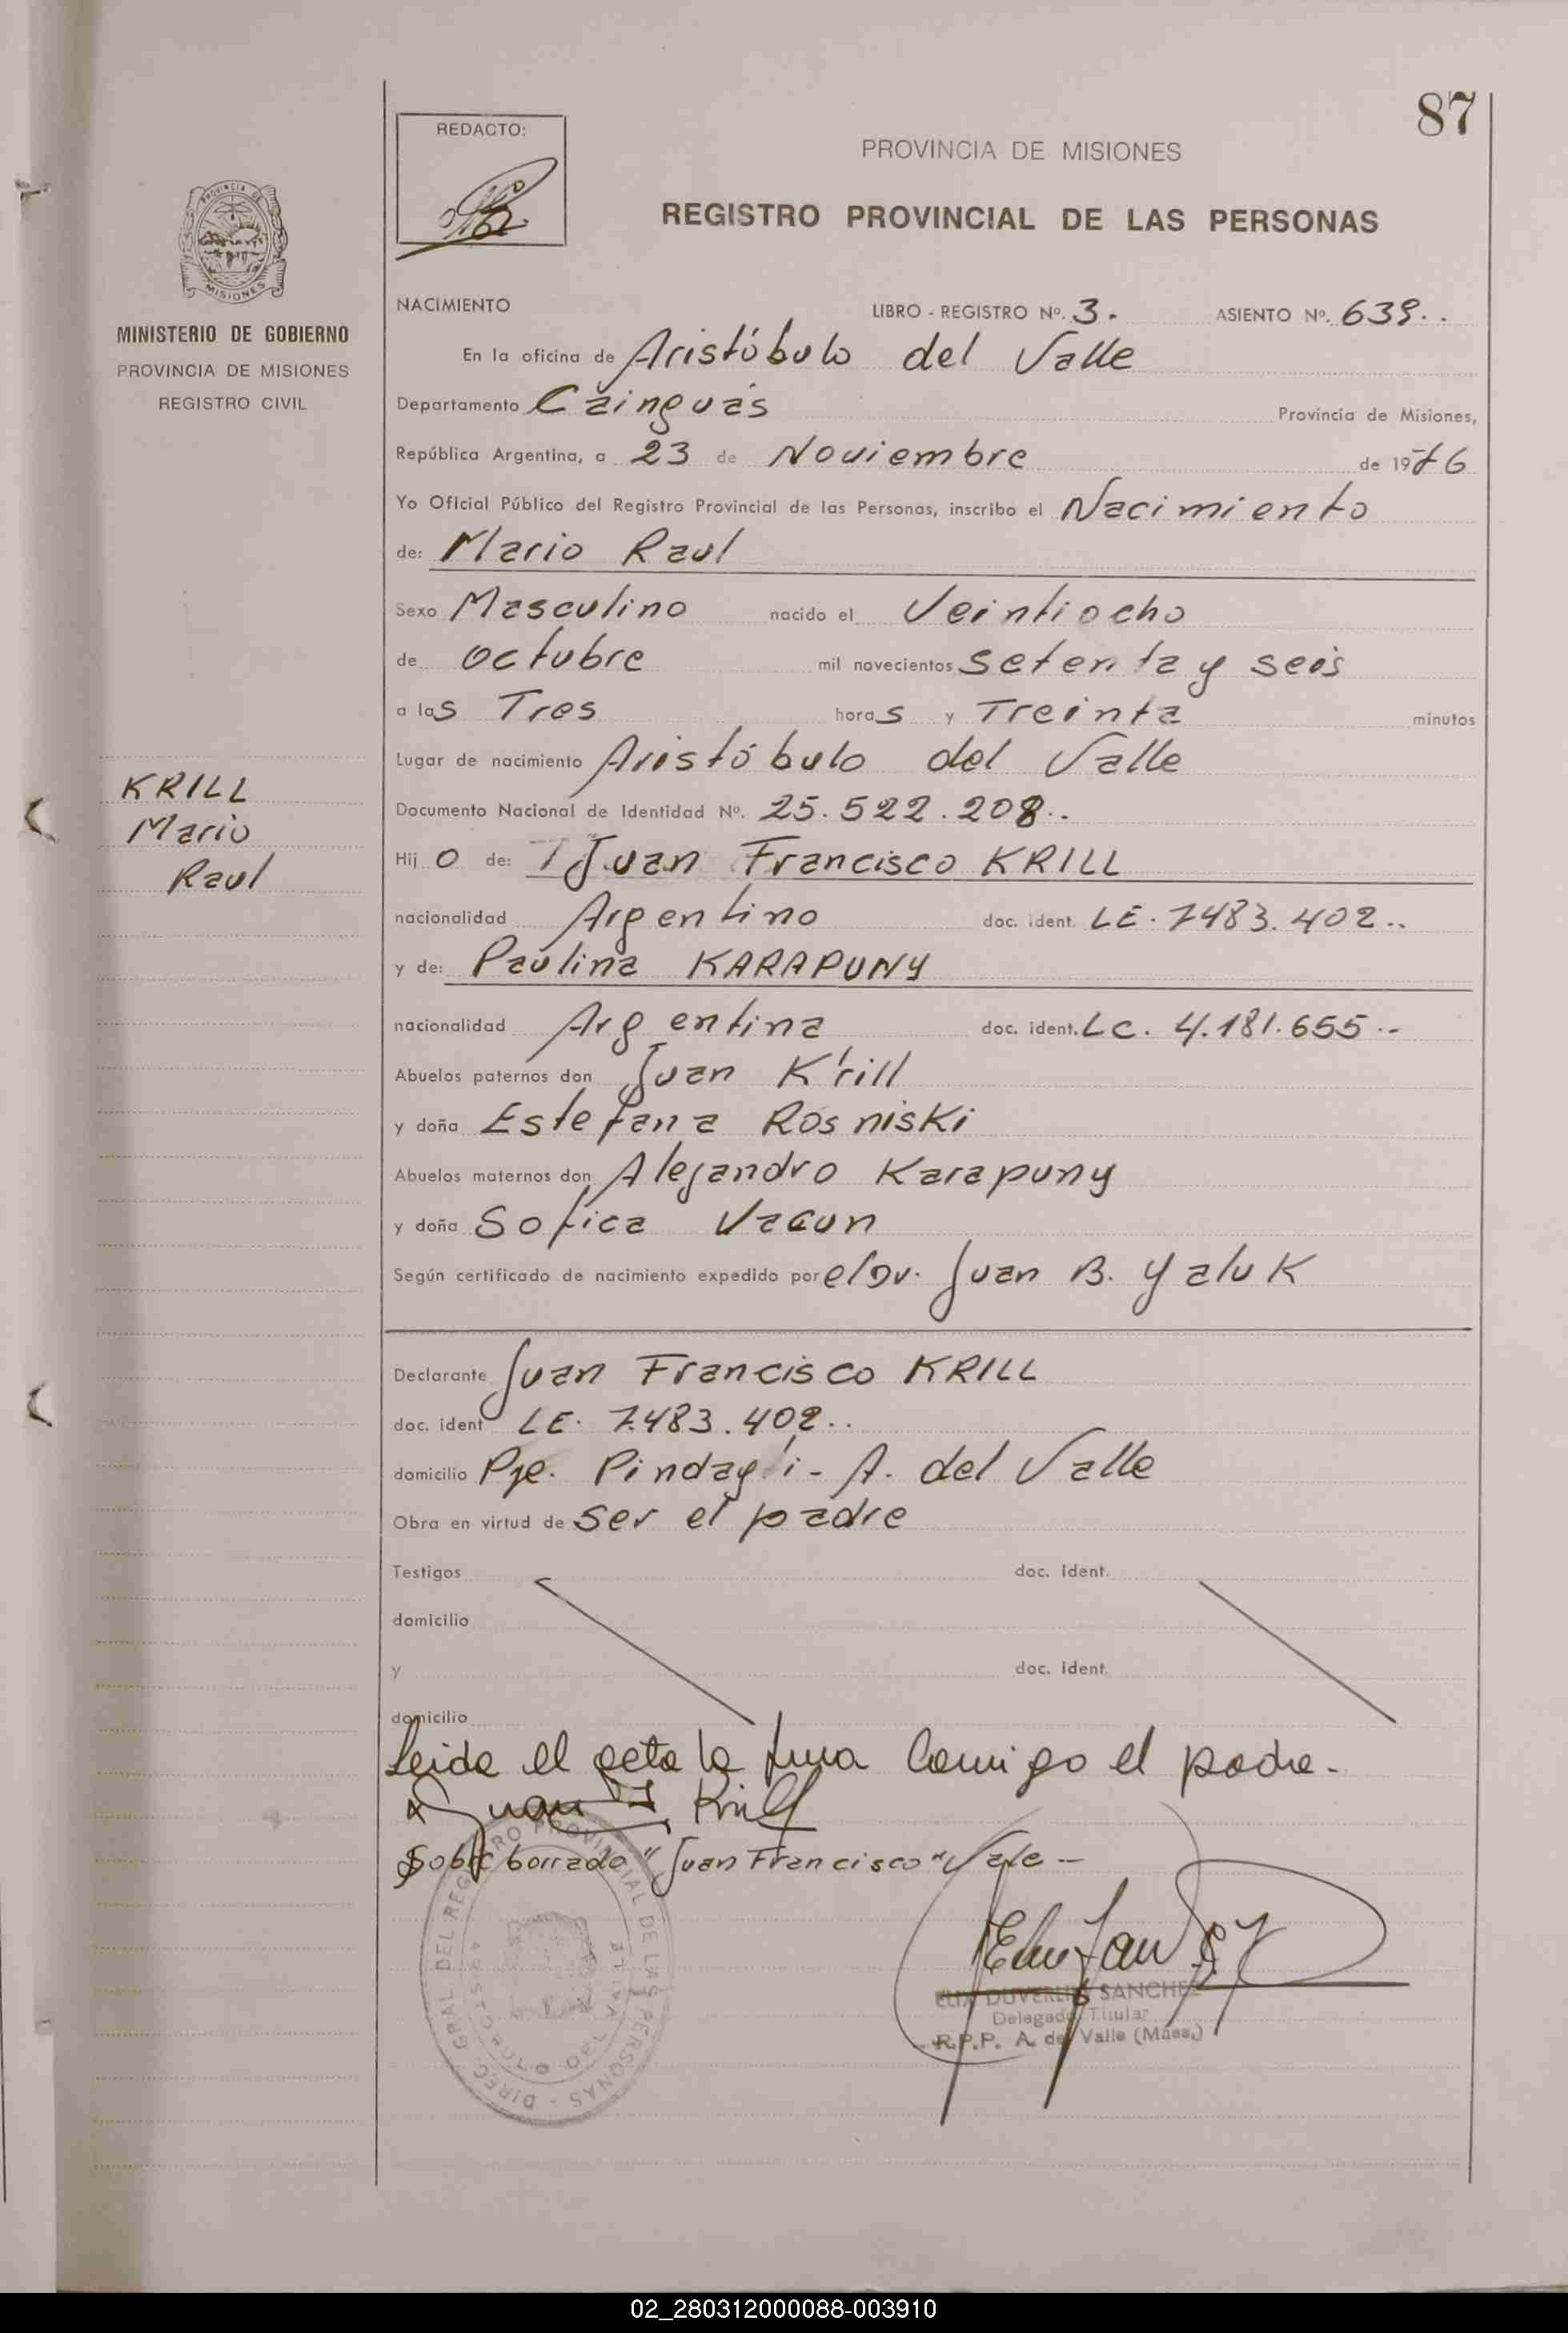 87
REDACTO:
PROVINCIA DE MISIONES
REGISTRO PROVINCIAL DE LAS PERSONAS
PROVINCIA DE
MISIONES
MINISTERIO DE GOBIERNO
PROVINCIA DE MISIONES
REGISTRO CIVIL
NACIMIENTO LIBRO - REGISTRO Nº. 3. ASIENTO Nº. 639..
En la oficina de Aristóbulo del Valle
Departamento Cainguás Provincia de Misiones,
República Argentina, a 23 de Noviembre de 1976
Yo Oficial Público del Registro Provincial de las Personas, inscribo el Nacimiento
de: Mario Raul
Sexo Masculino nacido el Veintiocho
de octubre mil novecientos setenta y seis
a las Tres horas y Treinta minutos
Lugar de nacimiento Aristóbulo del Valle
Documento Nacional de Identidad Nº. 25.522.208..
Hijo de: Juan Francisco KRILL
nacionalidad Argentino doc. ident. LE. 7483.402..
y de: Paulina KARAPUNY
nacionalidad Argentina doc. ident. LC. 4.181.655..
Abuelos paternos don Juan Krill
y doña Estefana Rosniski
Abuelos maternos don Alejandro Karapuny
y doña Sofica Vacun
Según certificado de nacimiento expedido por el Dr. Juan B. Yaluk
KRILL
Mario
Raul
Declarante Juan Francisco KRILL
doc. ident LE. 7.483.402..
domicilio Pje. Pindayti - A. del Valle
Obra en virtud de ser el padre
Testigos doc. Ident.
domicilio
y doc. ident.
domicilio
Leida el acta la firma conmigo el padre.
Juan F Krill
Sobre borrado "Juan Francisco" Vale -
DIREC. GRAL DEL REGISTRO PROVINCIAL DE LAS PERSONAS
ARISTOBULO DEL VALLE
DUVERLIS SANCHEZ
Delegado Titular
R.P.P. A. del Valle (Mnes.)
02_280312000088-003910